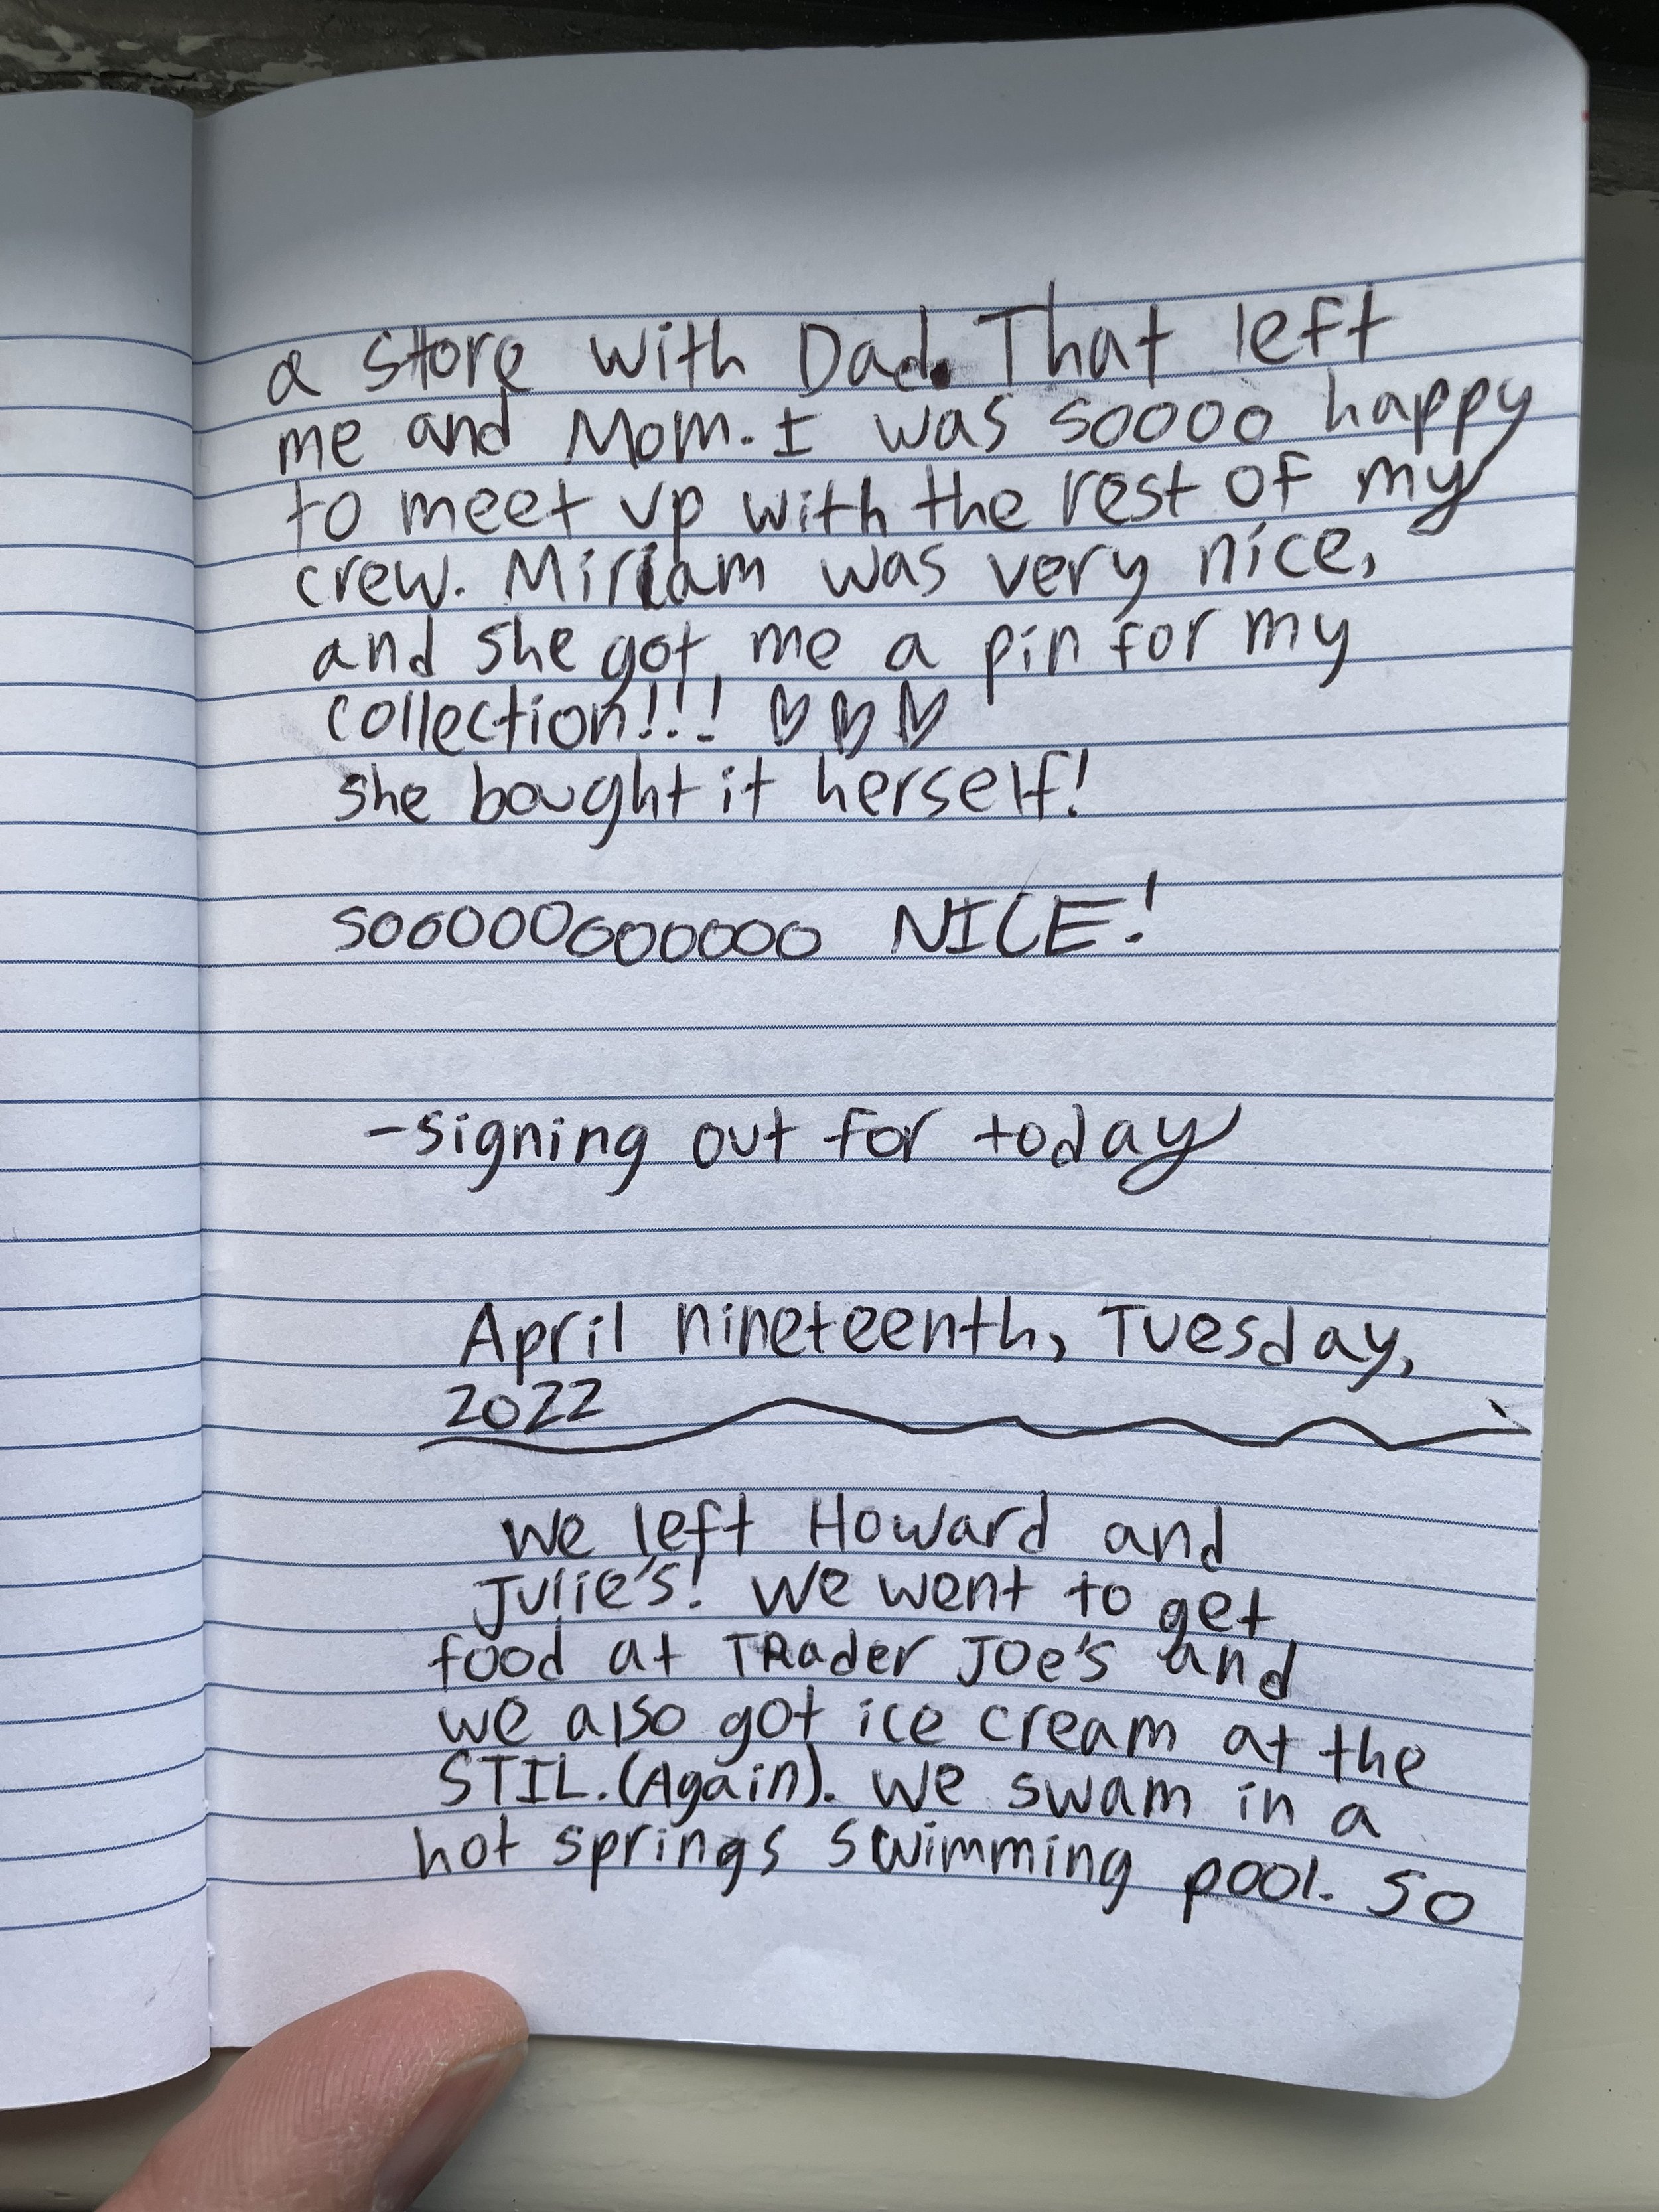 a store with Dad. That left
me and Mom. I was soooo happy
to meet up with the rest of my
crew. Miriam was very nice,
and she got me a pin for my
collection!!! ♡♡♡
she bought it herself!
sooooooooooooo NICE!
-signing out for today
April nineteenth, Tuesday,
2022
we left Howard and
Julie's! We went to get
food at TRader JOe's and
we also got ice cream at the
STIL.(Again). We swam in a
hot springs swimming pool. So